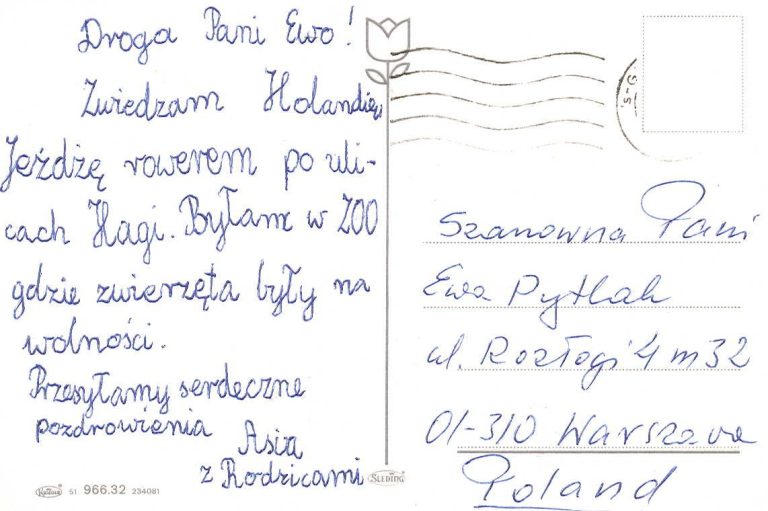 Droga Pani Ewo!
Zwiedzam Holandię,
Jeżdżę rowerem po uli-
cach Hagi. Byłam w ZOO
gdzie zwierzęta były na
wolności.
Przesyłamy serdeczne
pozdrowienia
Asia
z Rodzicami
Szanowna Pani
Ewa Pytlak
ul. Rozłogi 4 m 32
01-310 Warszawa
Poland
51 966.32 234081
SLEDING